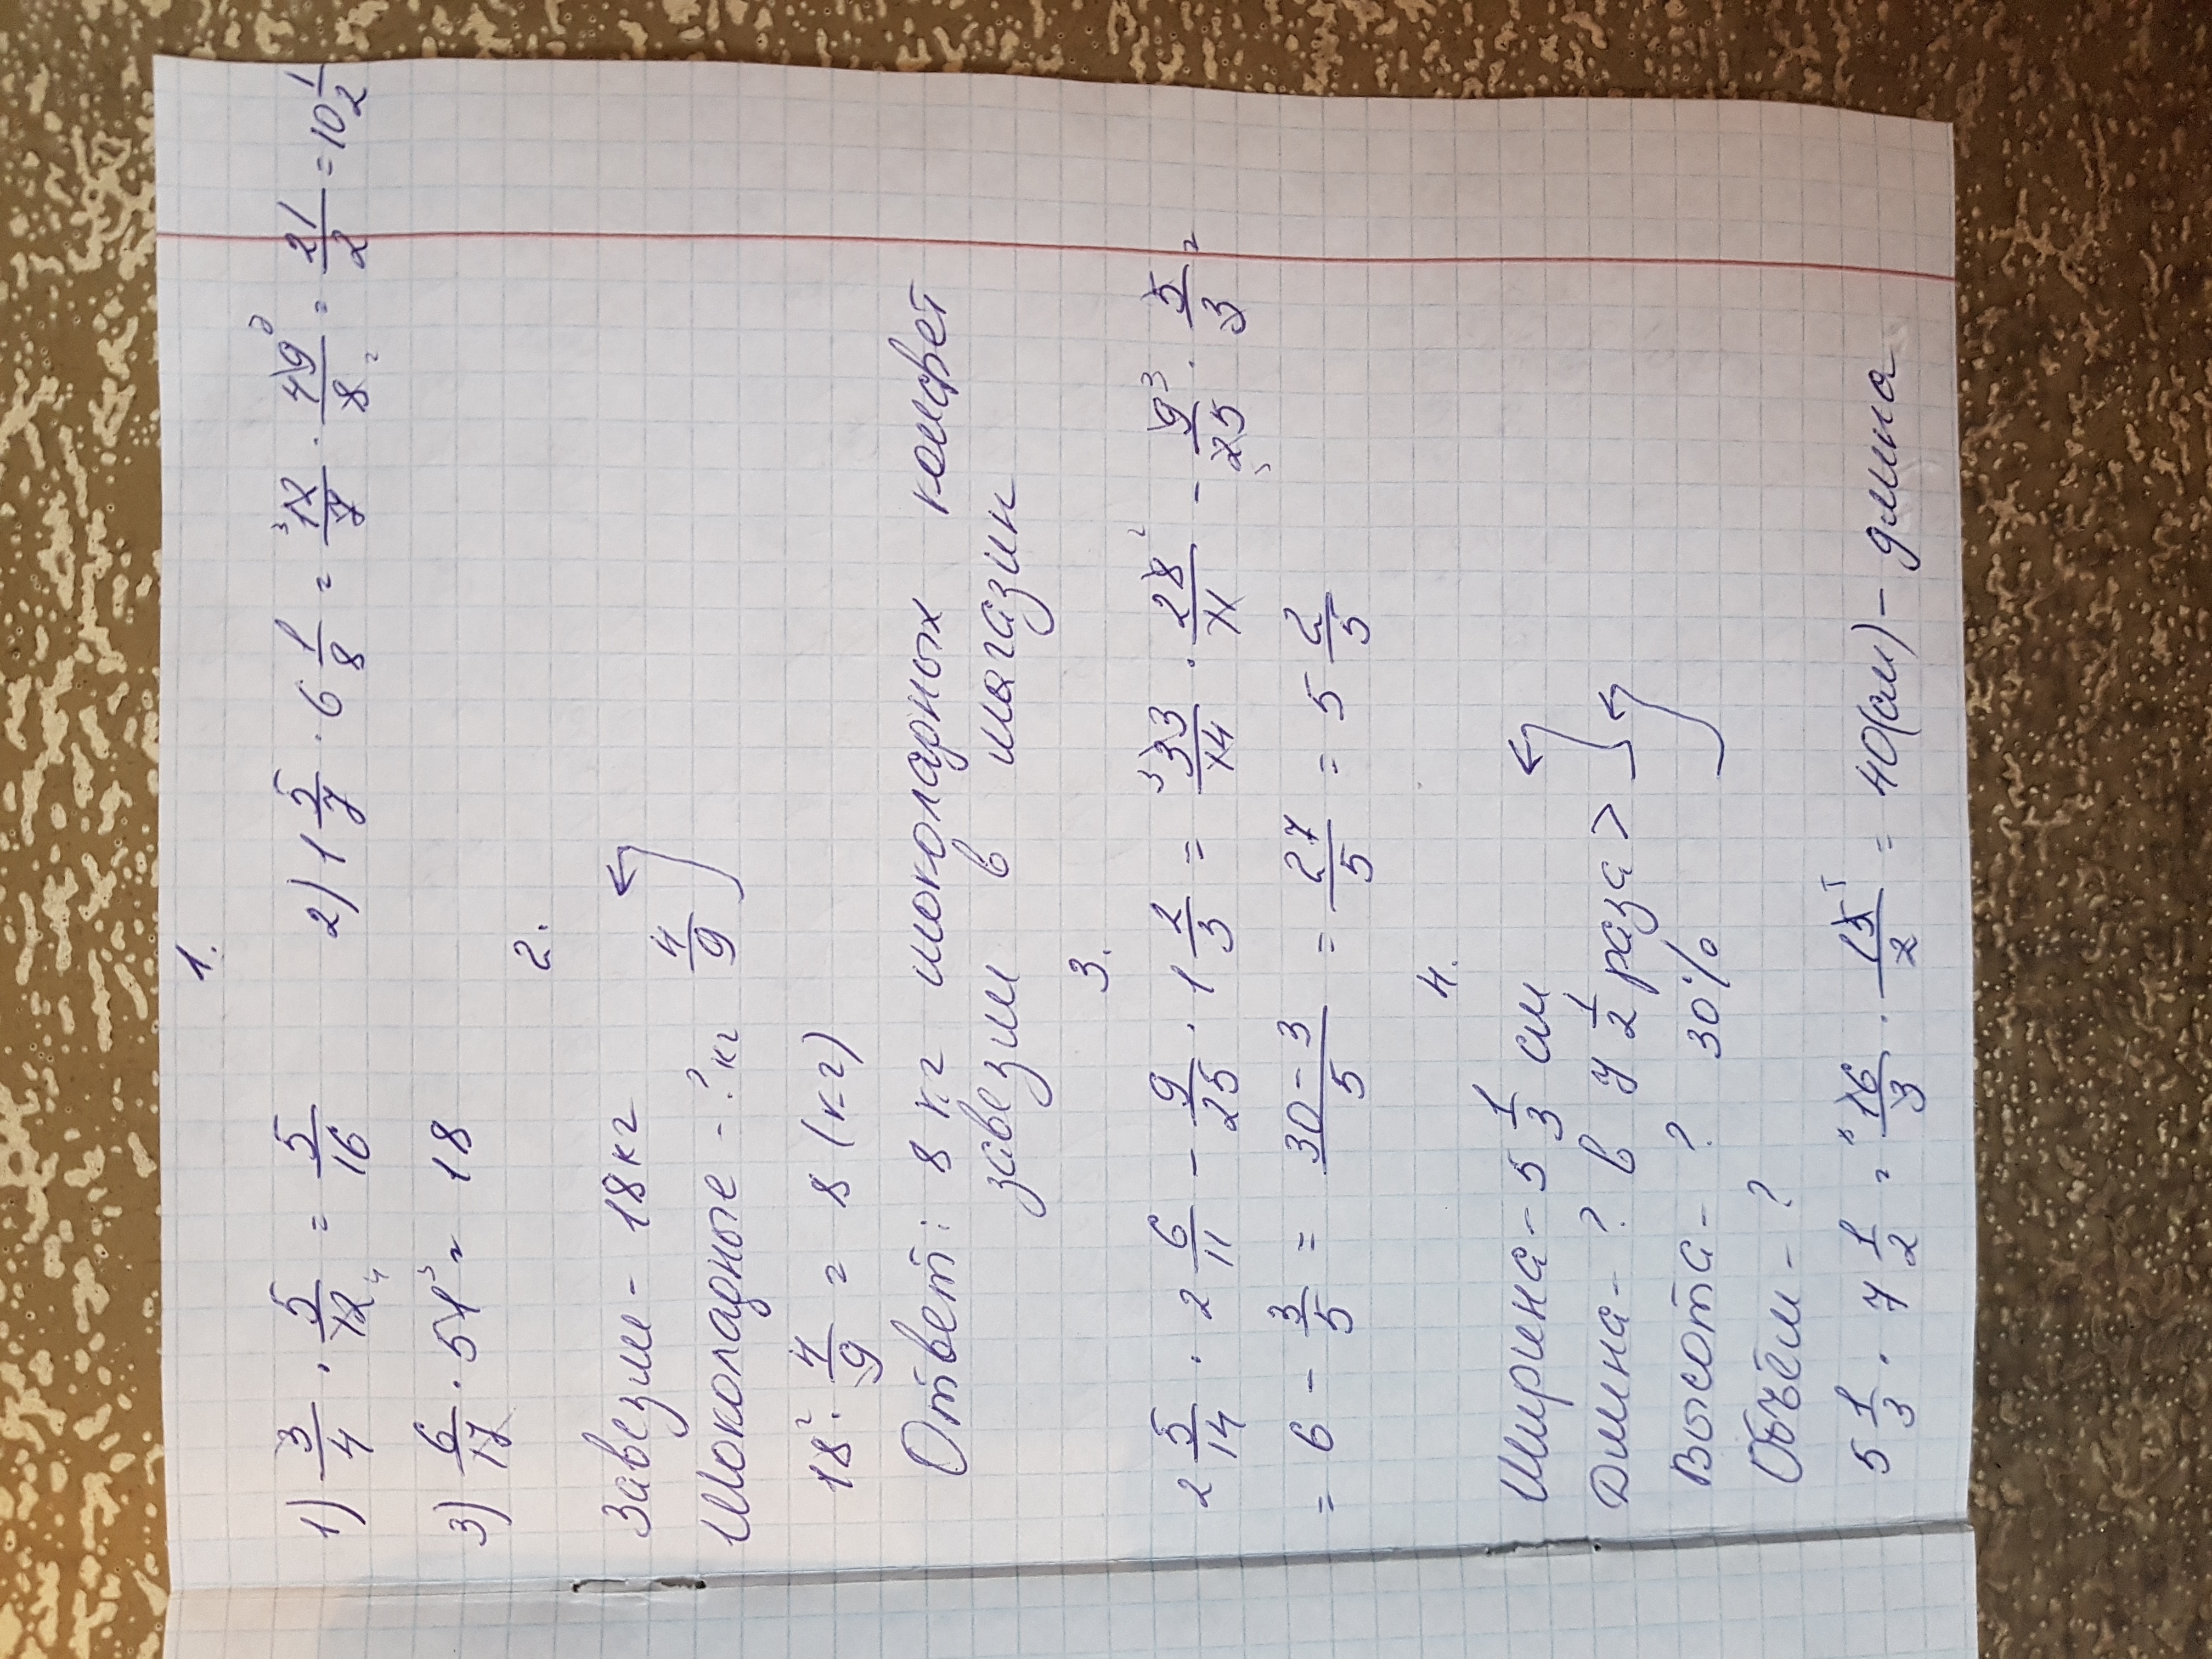 1.
1) 3/4 · 5/12 = 5/16 2) 1 5/7 · 6 1/8 = 12/7 · 49/8 = 21/2 = 10 1/2
3) 6/17 · 51 = 18
2.
Завезли - 18 кг
Шоколадные - ? кг 4/9
18 · 4/9 = 8 (кг)
Ответ: 8 кг шоколадных конфет
завезли в магазин
3.
2 5/14 · 2 6/11 - 9/25 · 1 2/3 = 33/14 · 28/11 - 9/25 · 5/3 =
= 6 - 3/5 = 30-3/5 = 27/5 = 5 2/5
4.
Ширина - 5 1/3 см
Длина - ? в 7 1/2 раза >
Высота - ? 30%
Объём - ?
5 1/3 · 7 1/2 = 16/3 · 15/2 = 40(см) - длина